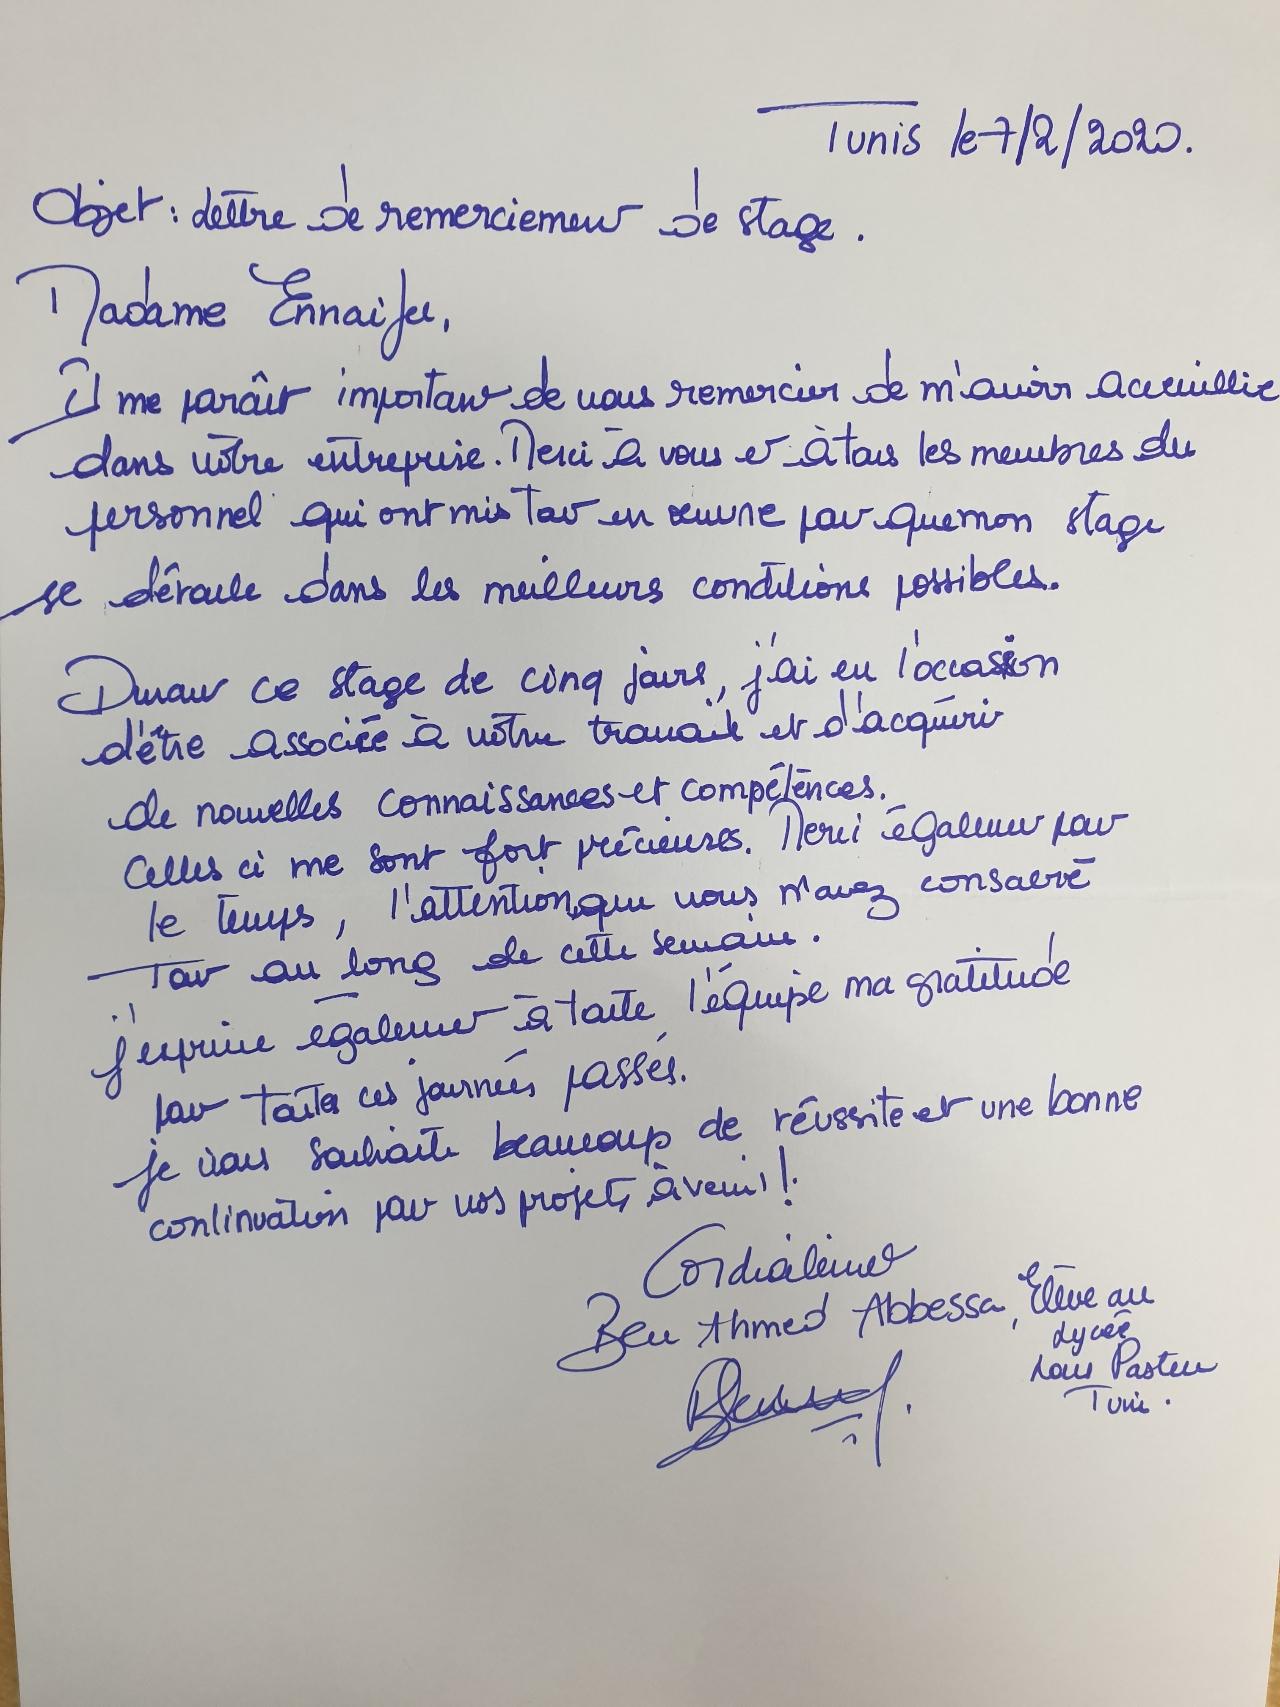 Tunis le 7/2/2020.
Objet : lettre de remerciement de stage.
Madame Ennaifer,
Il me paraît important de vous remercier de m'avoir accueillie
dans votre entreprise. Merci à vous et à tous les membres du
personnel qui ont mis tout en œuvre pour que mon stage
se déroule dans les meilleurs conditions possibles.
Durant ce stage de cinq jours, j'ai eu l'occasion
d'être associée à votre travail et d'acquérir
de nouvelles connaissances et compétences.
Celles ci me sont fort précieuses. Merci également pour
le temps, l'attention, que vous m'avez consacré
Tout au long de cette semaine.
j'exprime également à toute l'équipe ma gratitude
pour toutes ces journées passés.
je vous souhaite beaucoup de réussite et une bonne
continuation pour vos projets à venir !
Cordialement
Ben Ahmed Abbessa, Elève au
Lycée
Louis Pasteur
Tunis.